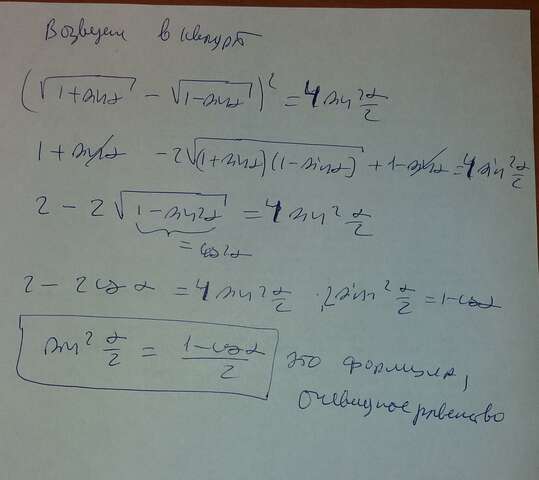 Возведем в квадрат
(√(1+sinα) − √(1−sinα))² = 4 sin² α/2
1 + sinα − 2√((1+sinα)(1−sinα)) + 1 − sinα = 4 sin² α/2
2 − 2√(1−sin²α) = 4 sin² α/2
= cos²α
2 − 2cos α = 4 sin² α/2 , 2 sin² α/2 = 1−cosα
sin² α/2 = (1−cosα)/2 это формула,
очевидное равенство